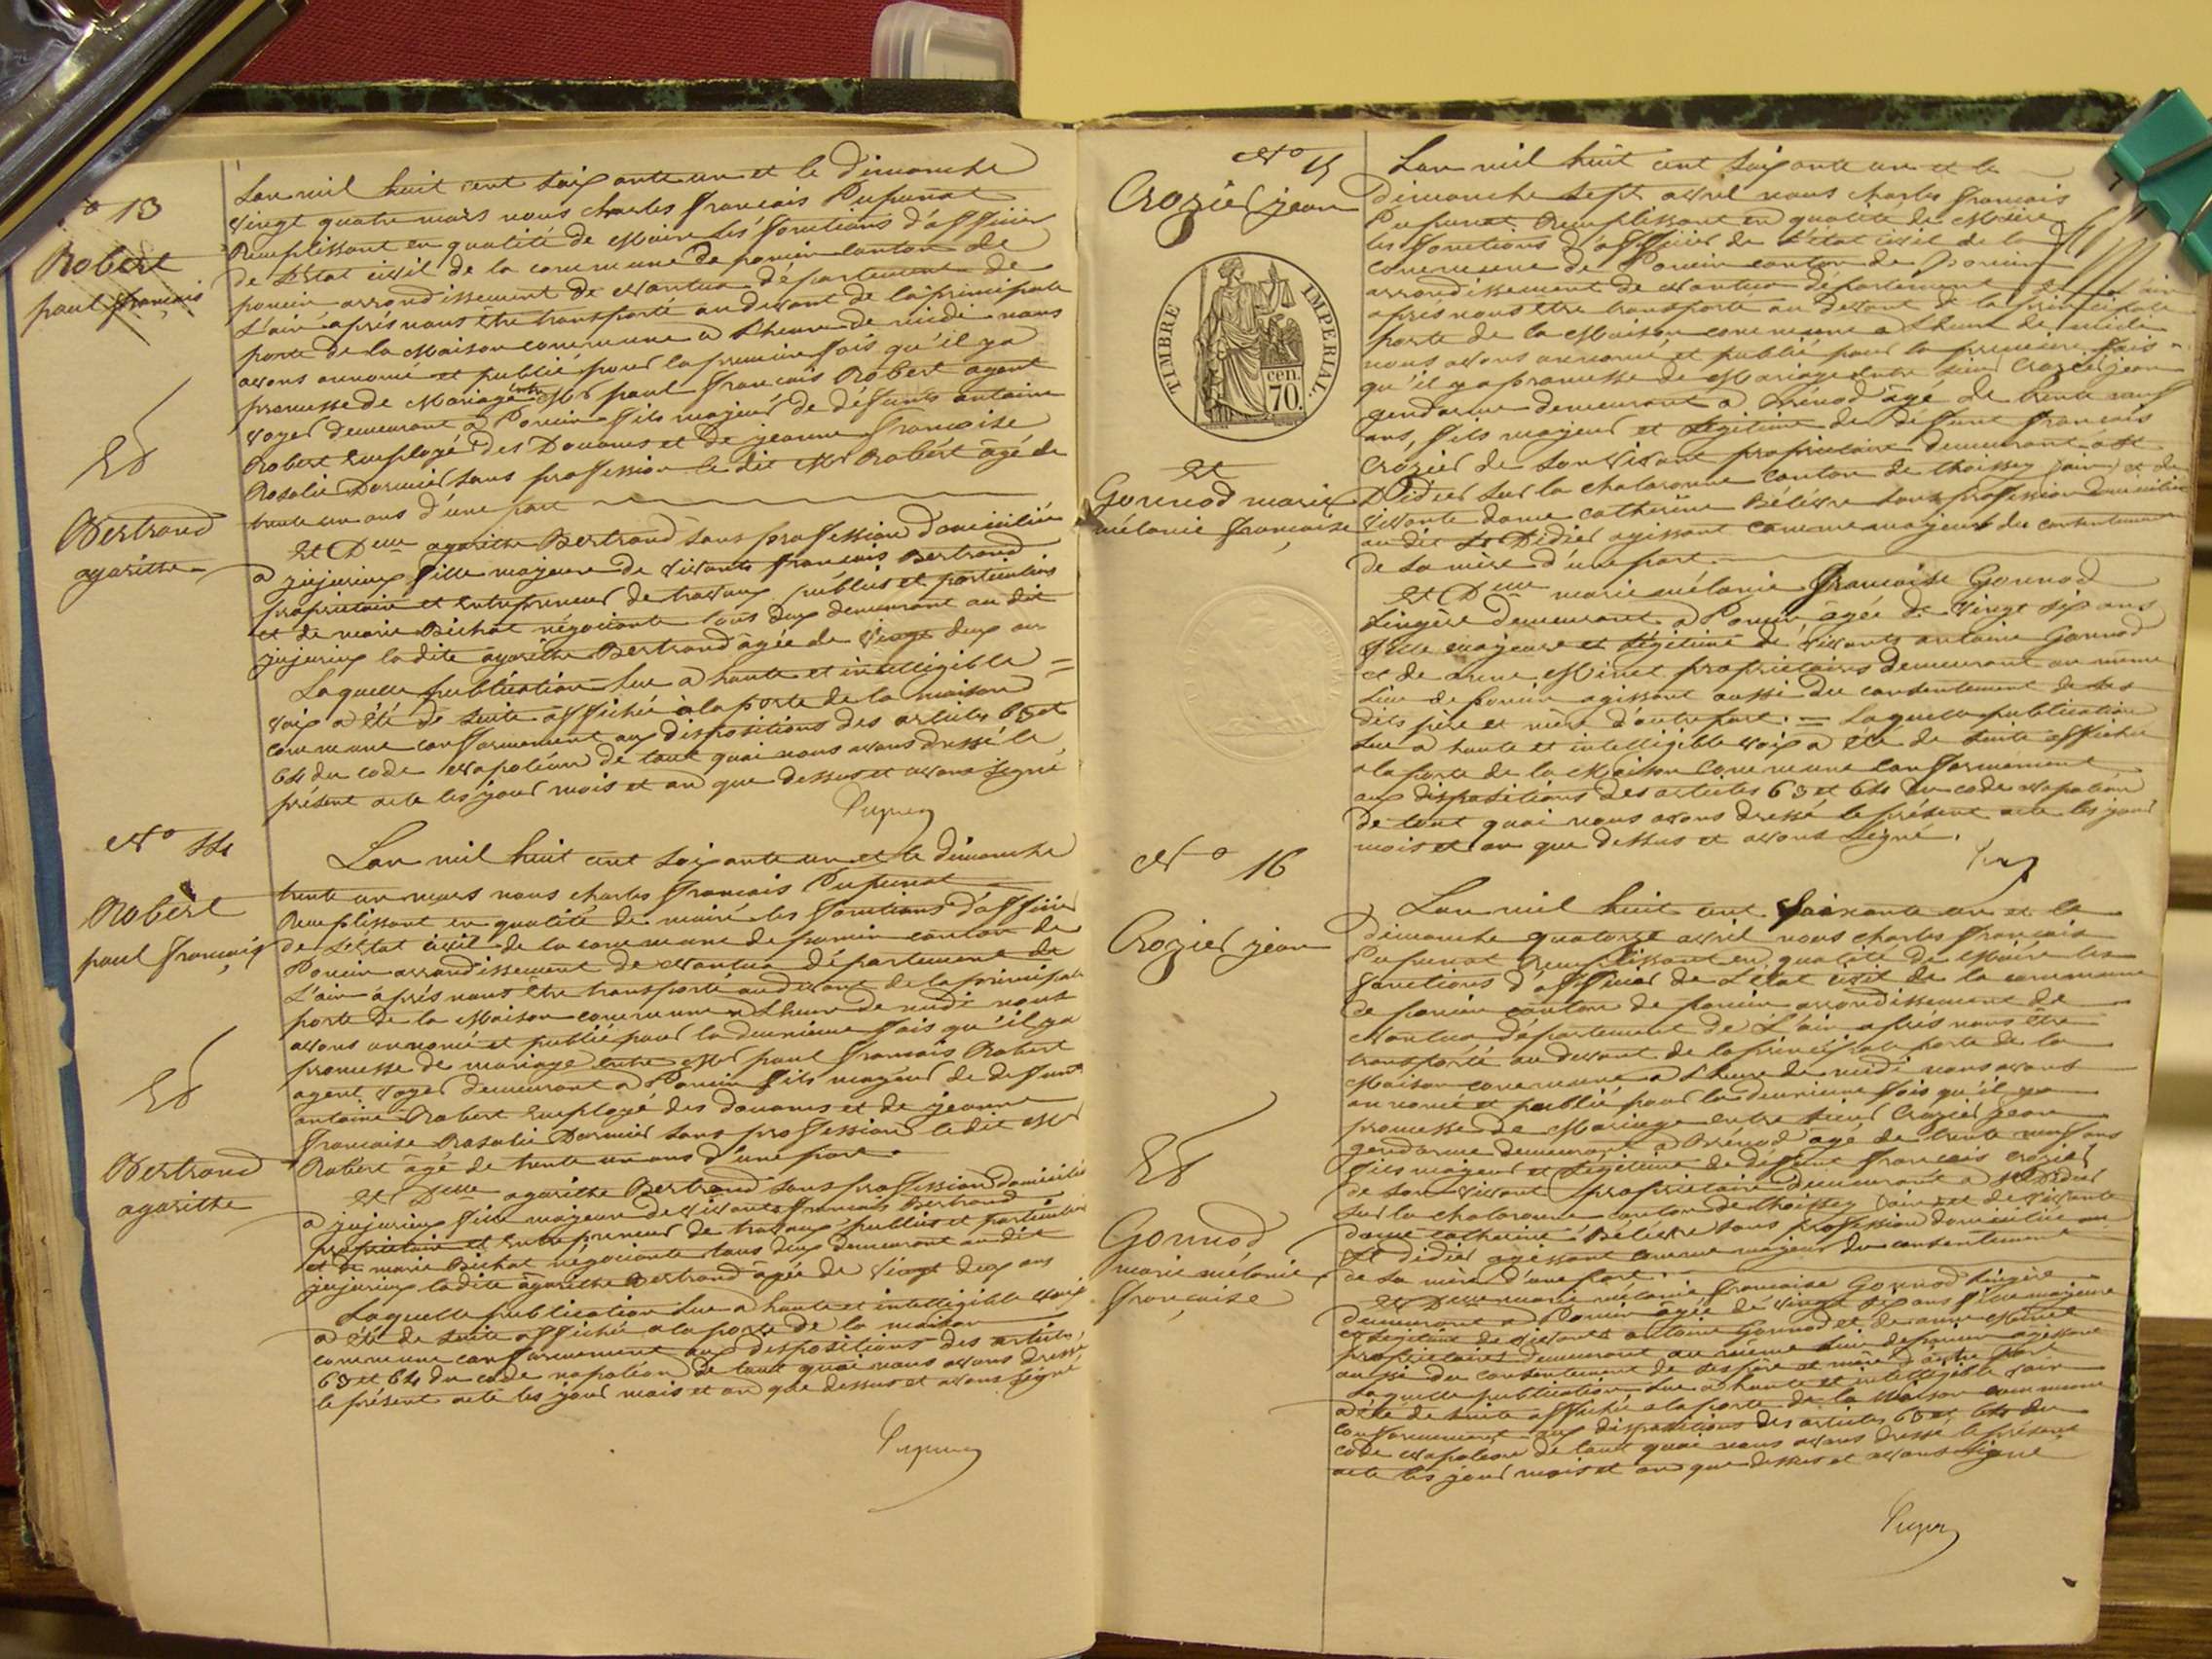 N° 13
Robert
paul françois
Et
Bertrand
agarithe
Lan mil huit cent soixante un et le Dimanche
vingt quatre mars nous charles françois Pupunat
Remplissant en qualité de Maire les fonctions d'officier
de L'Etat civil de la commune de poncin canton de
poncin arrondissement de Nantua département de
L'ain après nous être transporté au devant de la principale
porte de la Maison commune a Lheure de midi nous
avons annoncé et publié pour la première fois qu'il ya
promesse de Mariage entre Mr paul françois Robert agent
voyer demeurant a Poncin fils majeur de défunt antoine
Robert Employé des Douanes et de jeanne françoise
Rosalie Dormier sans profession le dit Mr Robert âgé de
trente un ans d'une part
Et Delle agarithe Bertrand sans profession domiciliée
a jujurieux fille majeure de vivants françois Bertrand
propriétaire et Entrepreneur de travaux publics et particuliers
et de marie Bichat négociante tous deux demeurant au dit
jujurieux ladite agarithe Bertrand âgée de vingt deux ans
Laquelle publication lue a haute et intelligible =
voix a été de suite affichée à la porte de la maison
commune conformément aux dispositions des articles 63 et
64 du code Napoléon de tout quoi nous avons dressé le
présent acte les jour mois et an que dessus et avons signé
N° 14
Robert
paul françois
Et
Bertrand
agarithe
Lan mil huit cent soixante un et le dimanche
trente un mars nous charles françois Pupunat
Remplissant en qualité de maire les fonctions d'officier
de L'Etat civil de la commune de poncin canton de
Poncin arrondissement de Nantua département de
L'ain après nous être transporté au devant de la principale
porte de la Maison commune a Lheure de midi nous
avons annoncé et publié pour la deuxième fois qu'il ya
promesse de mariage entre Mr paul françois Robert
agent voyer demeurant a Poncin fils majeur de defunt
antoine Robert Employé des douanes et de jeanne
françoise Rosalie Dormier sans profession ledit Mr
Robert âgé de trente un ans d'une part
Et Delle agarithe Bertrand sans profession domiciliée
a jujurieux fille majeure de vivants françois Bertrand
propriétaire et Entrepreneur de travaux publics et particuliers
et de marie Bichat négociante tous deux demeurant au dit
jujurieux ladite agarithe Bertrand âgée de vingt deux ans
Laquelle publication lue a haute et intelligible voix
a été de suite affichée a la porte de la maison
commune conformément aux dispositions des articles
63 et 64 du code napoléon de tout quoi nous avons dressé
le présent acte les jour mois et an que dessus et avons signé
N° 15
Crozier jean
TIMBRE IMPERIAL
70 cen.
Et
Gonnod marie
mélanie françoise
Lan mil huit cent soixante un et le
dimanche Sept avril nous charles françois
Pupunat Remplissant en qualité de Maire
les fonctions d'officier de L'état civil de la
commune de Poncin canton de poncin
arrondissement de Nantua département de L'ain
après nous être transporté au devant de la principale
porte de la Maison commune a Lheure de midi
nous avons annoncé et publié pour la première fois
qu'il y a promesse de Mariage entre sieur Crozier jean
gendarme demeurant a Brénod âgé de trente neuf
ans, fils majeur et légitime de défunt françois
Crozier de son vivant propriétaire demeurant a St
Didier sur la chalaronne canton de thoissey (ain) et de
vivante dame catherine Bélièvre sans profession domiciliée
au dit St Didier agissant comme majeur du consentement
de sa mère d'une part.
Et Delle marie mélanie françoise Gonnod
Lingère demeurant a Poncin âgée de vingt six ans
fille majeure et légitime de vivants antoine Gonnod
et de anne Minet propriétaires demeurant au même
lieu de poncin agissant aussi du consentement de ses
dits père et mère d'autre part. = Laquelle publication
lue a haute et intelligible voix a été de suite affichée
a la porte de la Maison commune conformément
aux dispositions des articles 63 et 64 du code Napoléon
de tout quoi nous avons dressé le présent acte les jour
mois et an que dessus et avons signé.
N° 16
Crozier jean
Et
Gonnod
marie mélanie
françoise
Lan mil huit cent soixante un et le
dimanche quatorze avril nous charles françois
Pupunat Remplissant en qualité de Maire les
fonctions d'officier de L'état civil de la commune
de poncin canton de poncin arrondissement de
Nantua département de L'ain après nous être
transporté au devant de la principale porte de la
Maison commune a Lheure de midi nous avons
annoncé et publié pour la deuxième fois qu'il ya
promesse de Mariage entre sieur Crozier jean
gendarme demeurant a Brénod âgé de trente neuf ans
fils majeur et légitime de défunt françois crozier
de son vivant propriétaire demeurant a St Didier
sur la chalaronne canton de thoissey (ain) et de vivante
dame catherine Bélièvre sans profession domiciliée au
St didier agissant comme majeur du consentement
de sa mère d'une part.
Et Delle marie mélanie françoise Gonnod Lingère
demeurant a Poncin âgée de vingt six ans fille majeure
et légitime de vivants antoine Gonnod et de anne Minet
propriétaires demeurant au même lieu de poncin agissant
aussi du consentement de ses père et mère d'autre part
Laquelle publication lue a haute et intelligible voix
a été de suite affichée a la porte de la Maison commune
conformément aux dispositions des articles 63 et 64 du
code Napoléon de tout quoi nous avons dressé le présent
acte les jour mois et an que dessus et avons signé